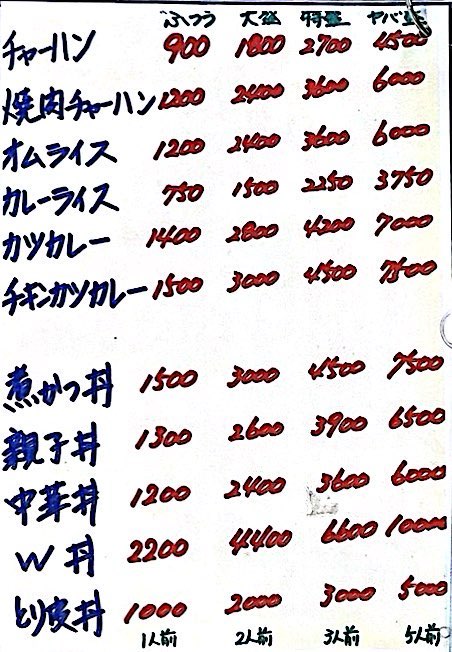 ふつう 大盛 特盛 ヤバ盛
チャーハン 900 1800 2700 4500
焼肉チャーハン 1200 2400 3600 6000
オムライス 1200 2400 3600 6000
カレーライス 750 1500 2250 3750
カツカレー 1400 2800 4200 7000
チキンカツカレー 1500 3000 4500 7500
煮かつ丼 1500 3000 4500 7500
親子丼 1300 2600 3900 6500
中華丼 1200 2400 3600 6000
W丼 2200 4400 6600 10000
とり皮丼 1000 2000 3000 5000
1人前 2人前 3人前 5人前